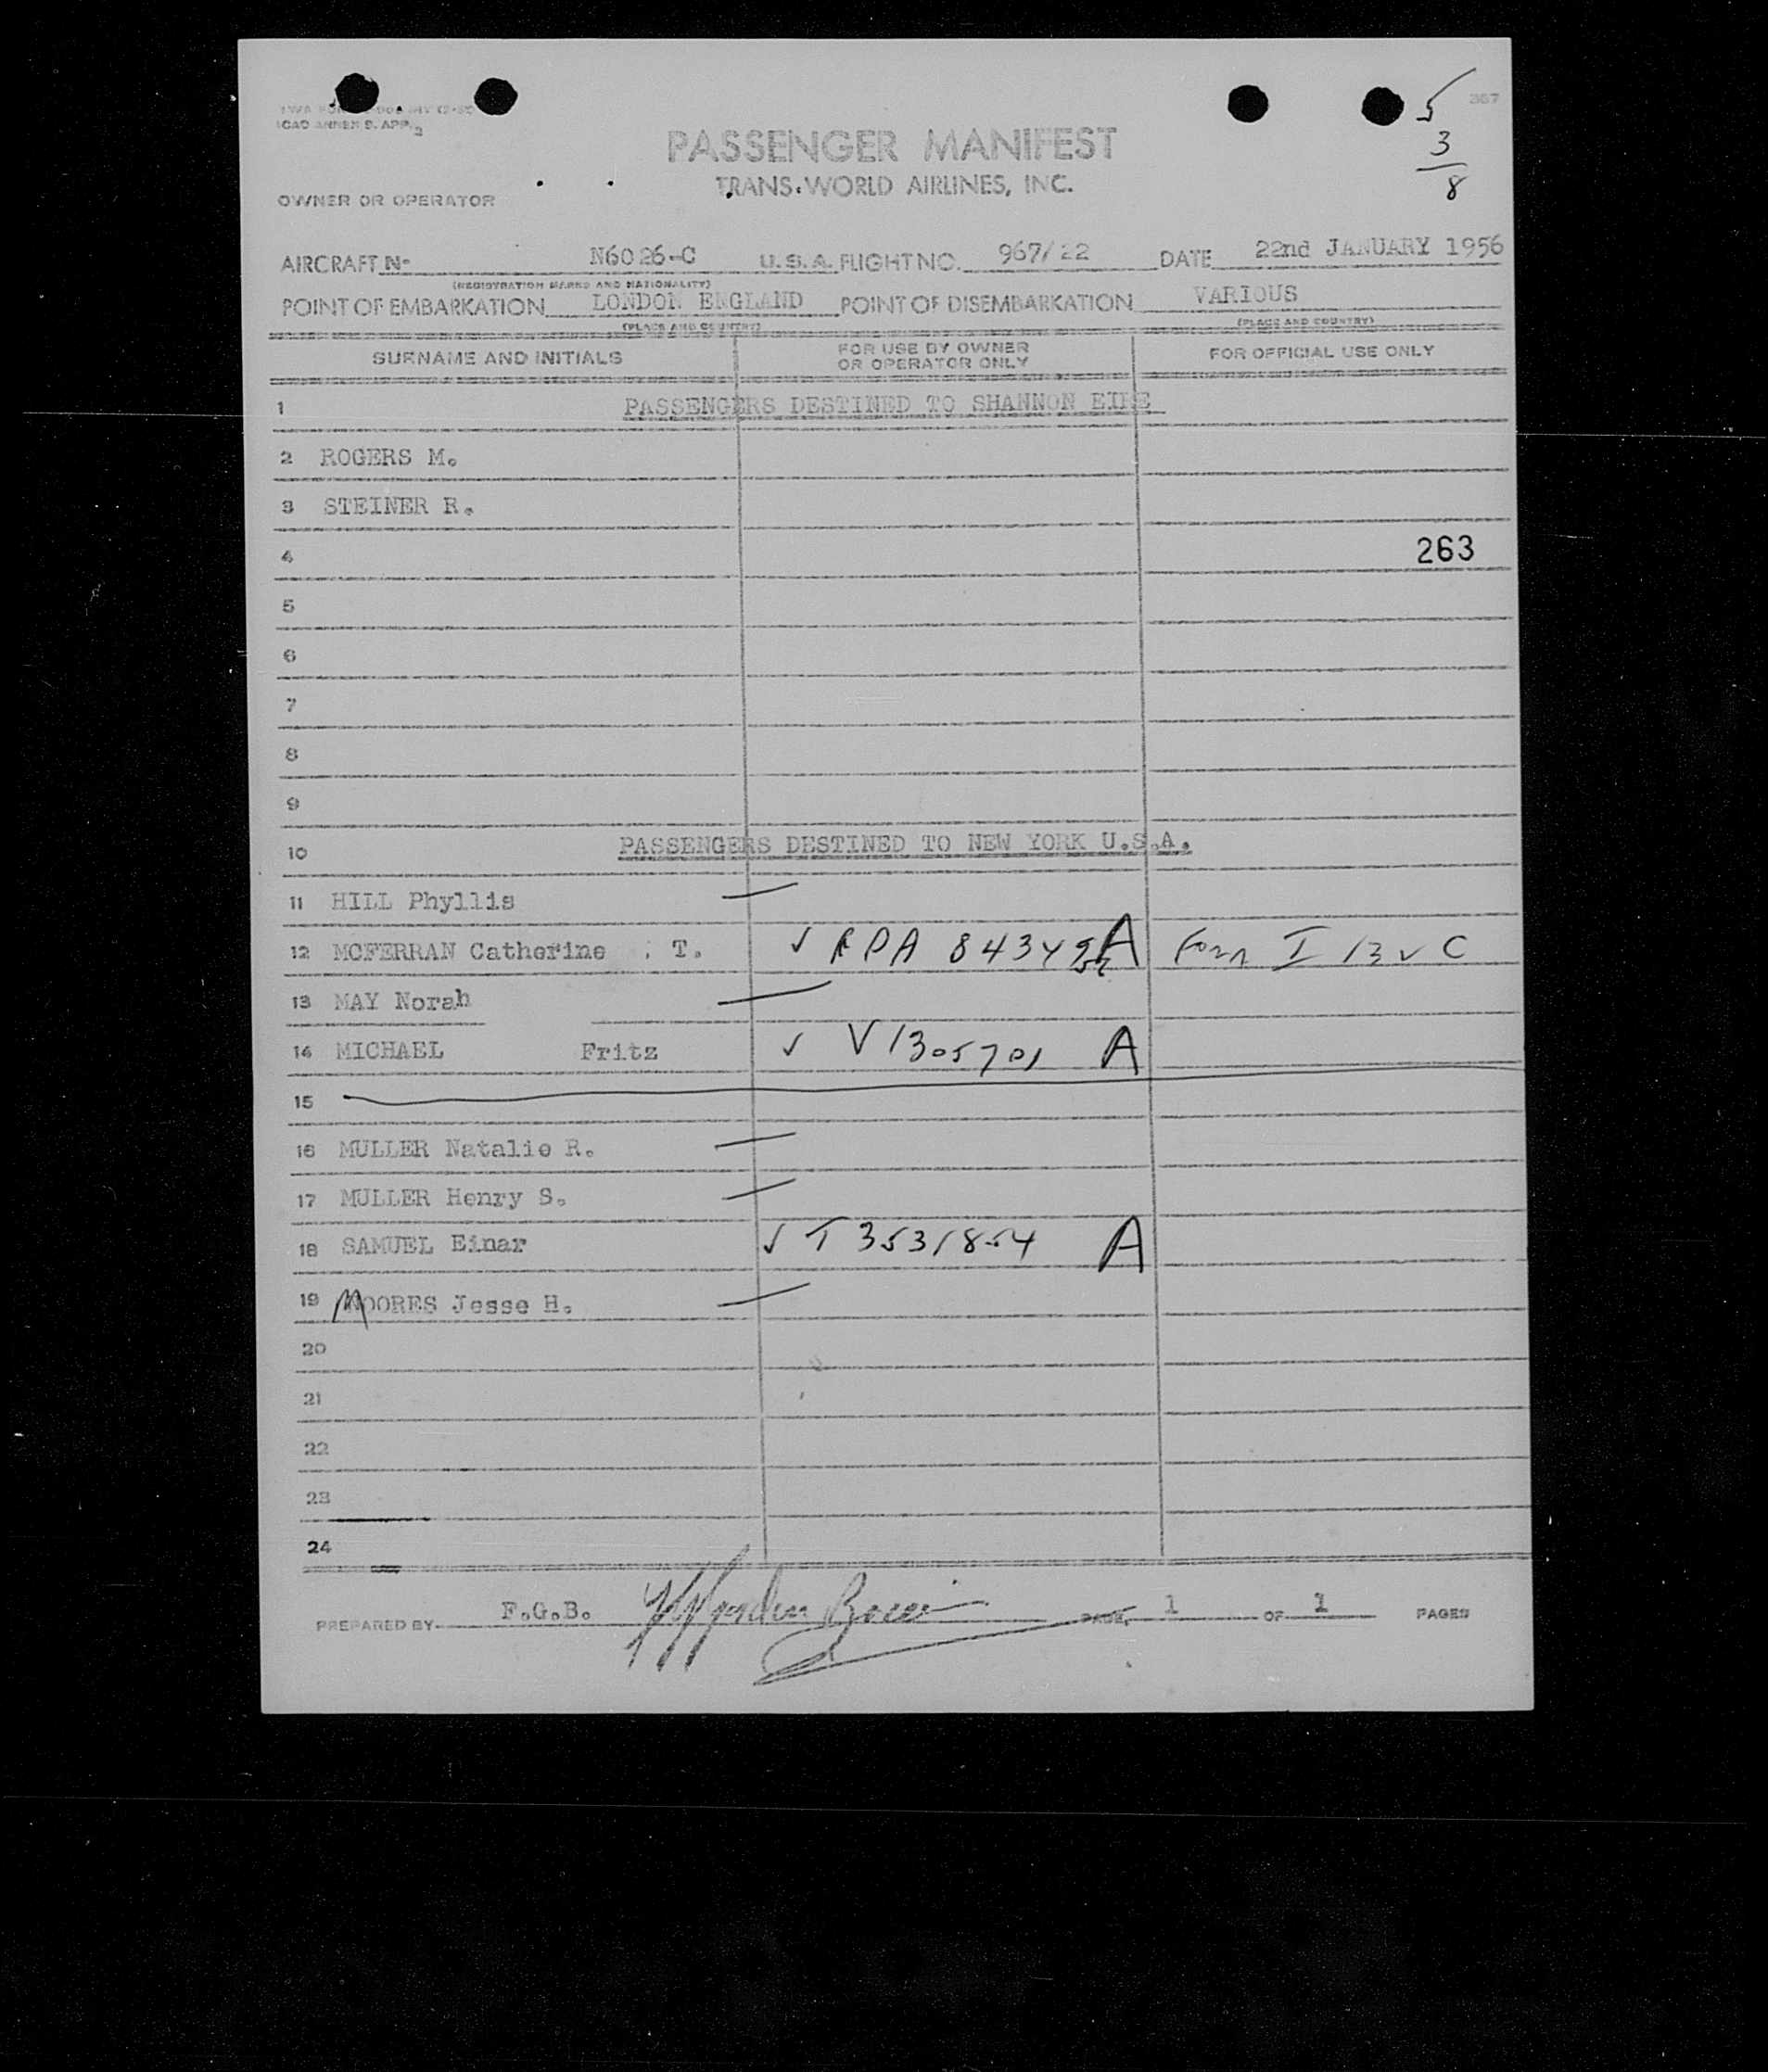 ICAO ANNEX 9. APP. 2
367
5
3
8
PASSENGER MANIFEST
TRANS WORLD AIRLINES, INC.
OWNER OR OPERATOR
AIRCRAFT No N6026-C U.S.A. FLIGHT NO. 967/22 DATE 22nd JANUARY 1956
(REGISTRATION MARKS AND NATIONALITY)
POINT OF EMBARKATION LONDON ENGLAND POINT OF DISEMBARKATION VARIOUS
(PLACE AND COUNTRY) (PLACE AND COUNTRY)
SURNAME AND INITIALS FOR USE BY OWNER OR OPERATOR ONLY FOR OFFICIAL USE ONLY
1 PASSENGERS DESTINED TO SHANNON EIRE
2 ROGERS M.
3 STEINER R.
4 263
5
6
7
8
9
10 PASSENGERS DESTINED TO NEW YORK U.S.A.
11 HILL Phyllis
12 MCFERRAN Catherine T. ✓ A Form I 13 ✓ C
13 MAY Norah
14 MICHAEL Fritz ✓ V1305701 A
15
16 MULLER Natalie R.
17 MULLER Henry S.
18 SAMUEL Einar ✓ T 3531854 A
19 MOORES Jesse H.
20
21
22
23
24
PREPARED BY F.G.B. PAGE 1 OF 1 PAGES